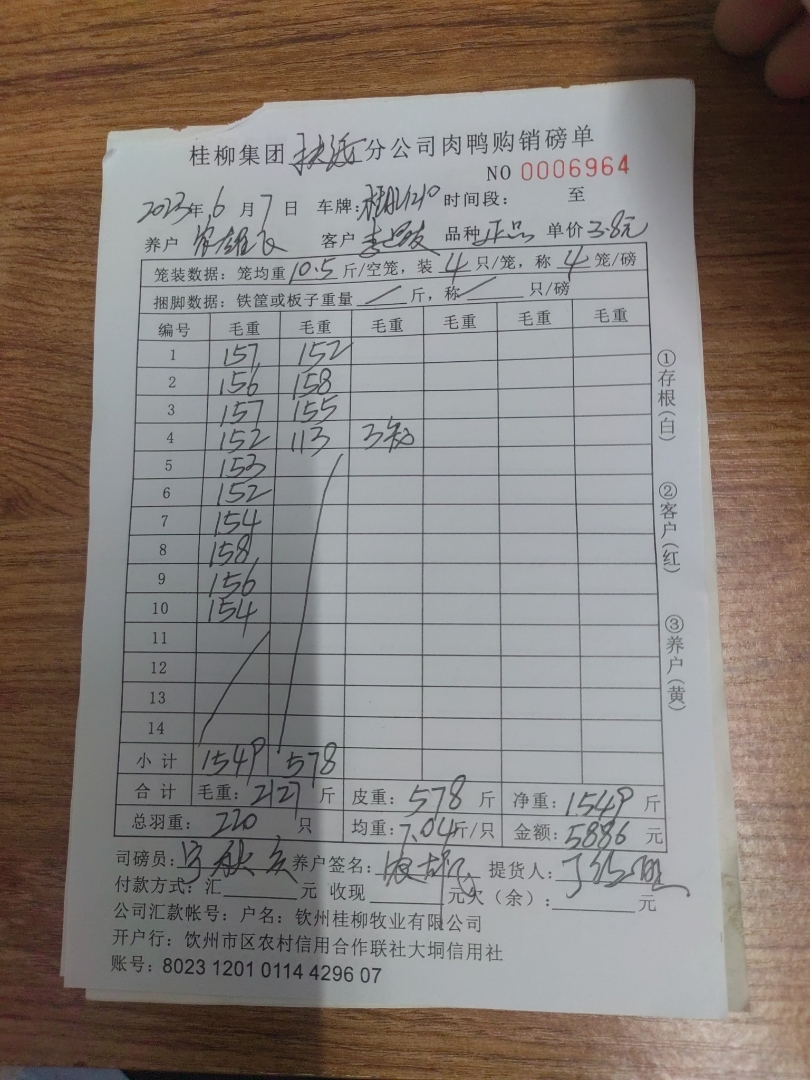 桂柳集团 分公司肉鸭购销磅单
NO 0006964
2023年 6 月 7 日 车牌: 时间段: 至
养户 客户 品种 正品 单价 3.8元
笼装数据: 笼均重 10.5 斤/空笼, 装 4 只/笼, 称 4 笼/磅
捆脚数据: 铁筐或板子重量 / 斤, 称 / 只/磅
编号 毛重 毛重 毛重 毛重 毛重 毛重
1 157 152
2 156 158
3 157 155
4 152 113 3
5 153
6 152
7 154
8 158
9 156
10 154
11
12
13
14
小计 1549 578
合计 毛重: 2127 斤 皮重: 578 斤 净重: 1549 斤
总羽重: 220 只 均重: 7.04斤/只 金额: 5886 元
司磅员: 养户签名: 提货人:
付款方式: 汇 元 收现 元欠(余): 元
公司汇款帐号: 户名: 钦州桂柳牧业有限公司
开户行: 饮州市区农村信用合作联社大垌信用社
账号: 8023 1201 0114 4296 07
①存根(白)
②客户(红)
③养户(黄)